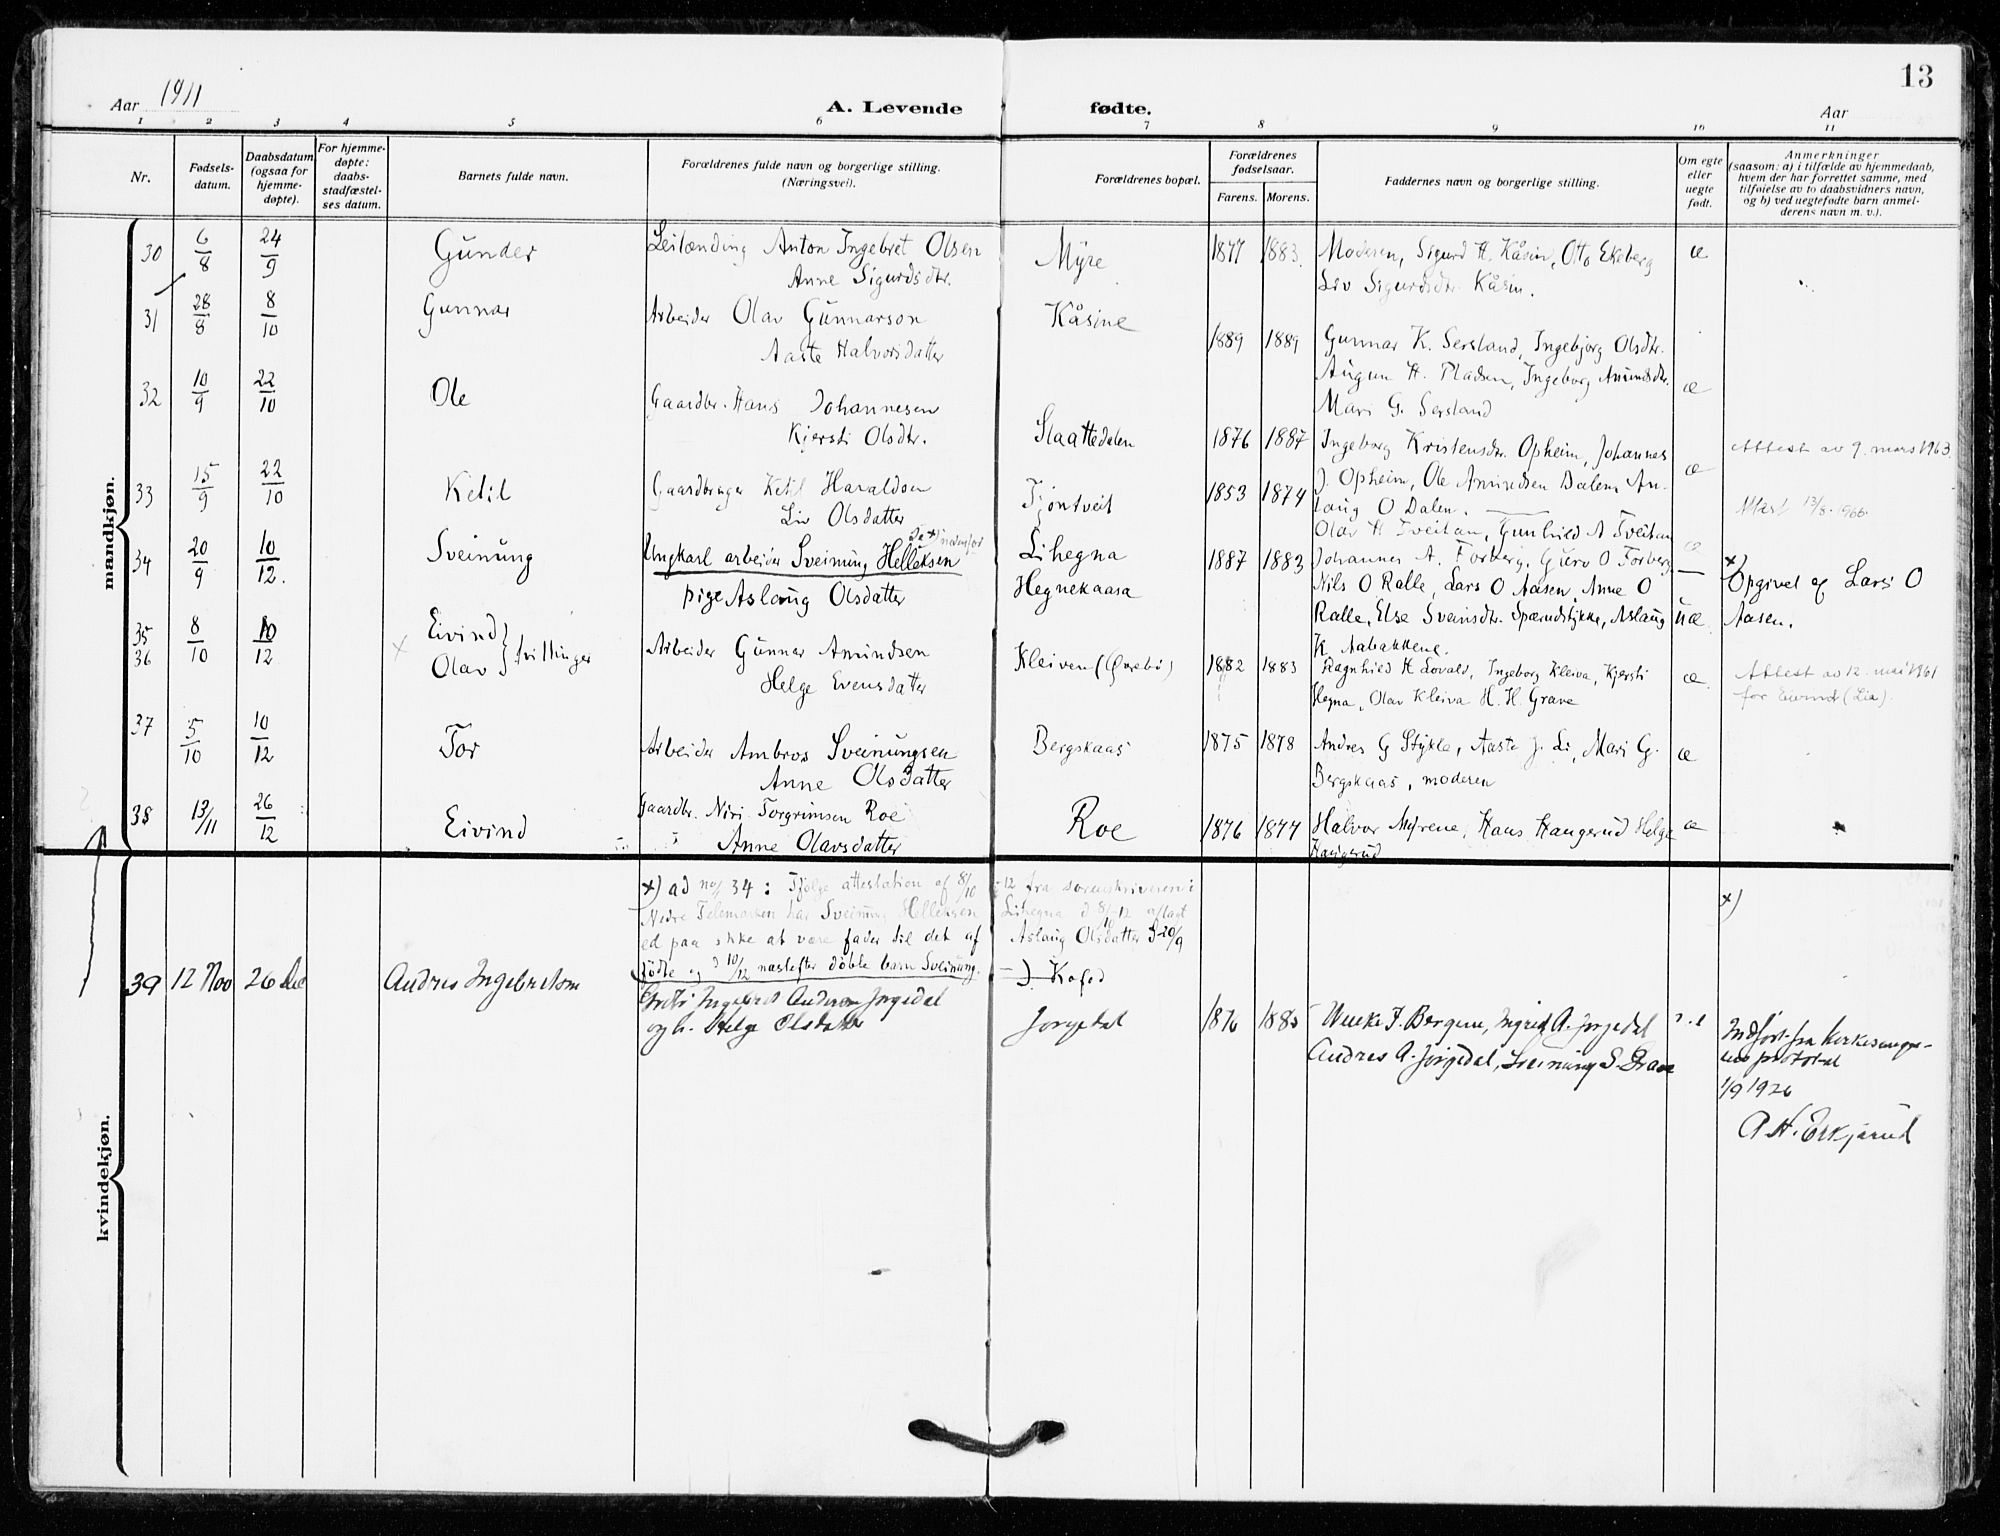 13
Aar 1911
A. Levende fødte.
Aar
1 2 3 4 5 6 7 8 9 10 11
Nr.
Fødsels-
datum.
Daabsdatum
(ogsaa for
hjemme-
døpte).
For hjemme-
døpte:
daabs-
stadfæstel-
ses datum.
Barnets fulde navn.
Forældrenes fulde navn og borgerlige stilling.
(Næringsvei).
Forældrenes bopæl.
Forældrenes
fødselsaar.
Farens. Morens.
Faddernes navn og borgerlige stilling.
Om egte
eller
uegte
født.
Anmerkninger
(saasom: a) i tilfælde av hjemmedaab,
hvem der har forrettet samme, med
tilføielse av to daabsvidners navn,
og b) ved uegtefødte barn anmel-
derens navn m. v.).
mandkjøn.
30 6/8 24/9 Gunder
Leilænding Anton Ingebret Olsen
Anne Sigurdsdtr.
Myre 1877 1883.
Moderen, Sigurd H. Kåsin, Otto Ekeberg
Liv Sigurdsdtr. Kåsin.
æ
31 28/8 8/10 Gunnar
Arbeider Olav Gunnarson
Aaste Halvorsdatter
Kåsine 1889 1889
Gunnar K. Sersland, Ingebjorg Olsdtr.
Augun H. Pladsen, Ingeborg Amundsdtr.
Mari G. Sersland
æ
32 10/9 22/10 Ole
Gaardbr. Hans Johannesen
Kjersti Olsdtr.
Slaattedalen 1876 1887
Ingeborg Kristensdtr. Opheim, Johannes
J. Opheim, Ole Amundsen Dalen, An-
laug O Dalen.
æ
Attest av 9. mars 1963.
33 15/9 22/10 Ketil
Gaardbruger Ketil Haraldsen
Liv Olsdatter
Tjøntveit 1853 1874
Olav H Tveitan, Gunhild A Tveitan
æ
13/8-1966.
34 20/9 10/12. Sveinung
Se x) nedenfor
Ungkarl arbeider Sveinung Helleksen
pige Aslaug Olsdatter
Lihegna
Hegnekaasa
1887 1883
Johannes A. Forberg, Guro O Forberg,
Nils O Ralle, Lars O Aasen, Anne O
Ralle, Else Sveinsdtr. Spærudstykke, Aslaug
K. Aabakkene.
uæ
x) Opgivet af Lars O
Aasen.
35 8/10 10/12 Eivind
36 x Olav } tvillinger
Arbeider Gunnar Amundsen
Helge Evensdatter
Kleiven (Øvrebø) 1882 1883
Ragnhild H Lovald, Ingeborg Kleiva, Kjersti
Hegna, Olav Kleiva H. H. Grave
æ.
Attest av 12. mai 1961
for Eivind (Lia).
37 5/10 10/12 Tor
Arbeider Ambros Sveinungsen
Anne Olsdatter
Bergskaas 1875 1878
Andres G Stykle, Aaste J. Li, Mari G.
Bergskaas, moderen
æ
38 13/11 26/12 Eivind
Gaardbr. Niri Torgrimsen Roe
Anne Olavsdatter
Roe 1876 1877
Halvor Myrene, Hans Haugerud Helga
Haugerud
æ
kvindekjøn.
x) ad no/ 34 : Ifølge attestation af 8/10 -12 fra sorenskriveren i
Nedre Telemarken har Sveinung Helleksen Lihegna d 8/10-12 aflagt
ed paa ikke at være fader til det af Aslaug Olsdatter d 20/9
fødte og d 10/12 næstefter døbte barn Sveinung. Kofod
x)
39 12 Nov 26 Dec Andres Ingebretsen
Ingebret Andersen Jorgedal
og h. Helge Olsdatter
Jorgedal 1876 1885
F. Bergum, Ingrid A. Jorgedal
Andres A. Jorgedal, Sveinung S. Grave
Indført fra kirkesange-
rens protokol
1/9 1926